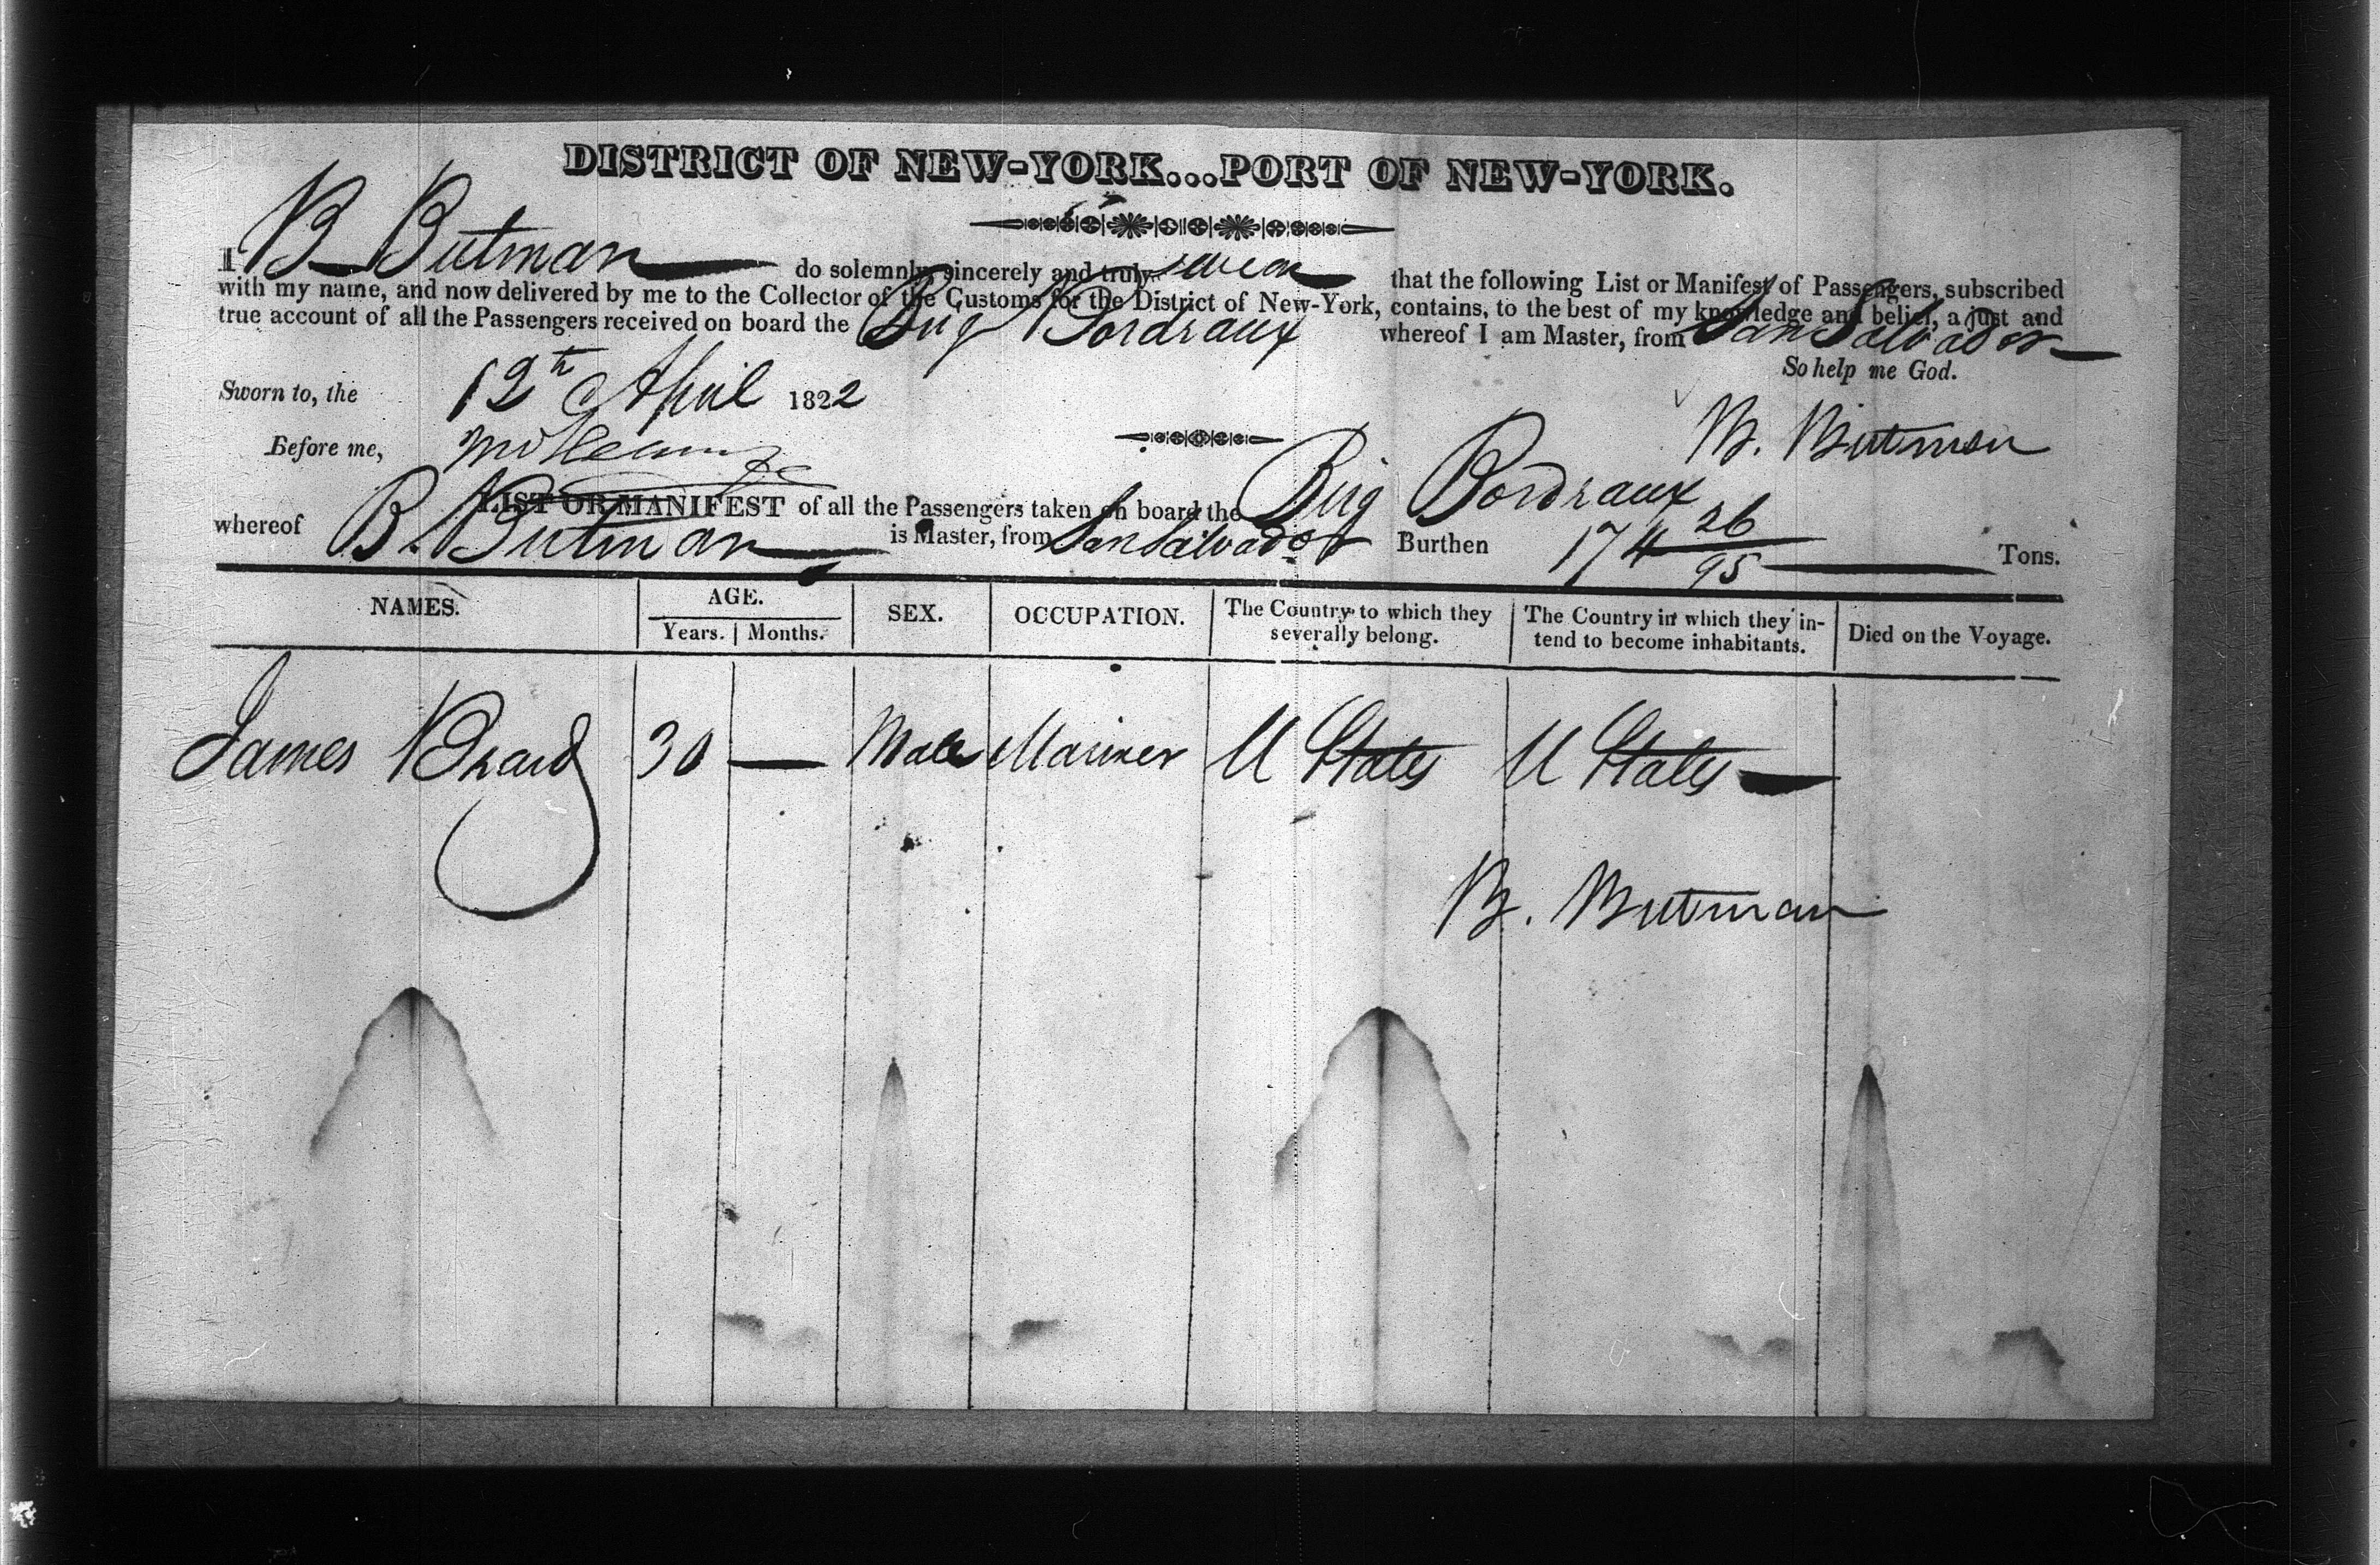 DISTRICT OF NEW-YORK...PORT OF NEW-YORK.
I B Butman do solemnly, sincerely and truly swear that the following List or Manifest of Passengers, subscribed
with my name, and now delivered by me to the Collector of the Customs for the District of New-York, contains, to the best of my knowledge and belief, a just and
true account of all the Passengers received on board the Brig Bordeaux whereof I am Master, from San Salvador
So help me God.
Sworn to, the 12th April 1822
B. Butman
Before me,
LIST OR MANIFEST of all the Passengers taken on board the Brig Bordeaux
whereof B. Butman is Master, from San Salvador Burthen 174 26/95 Tons.
NAMES. AGE. Years. Months. SEX. OCCUPATION. The Country to which they severally belong. The Country in which they intend to become inhabitants. Died on the Voyage.
James 30 — Male Mariner U States U States —
B. Butman